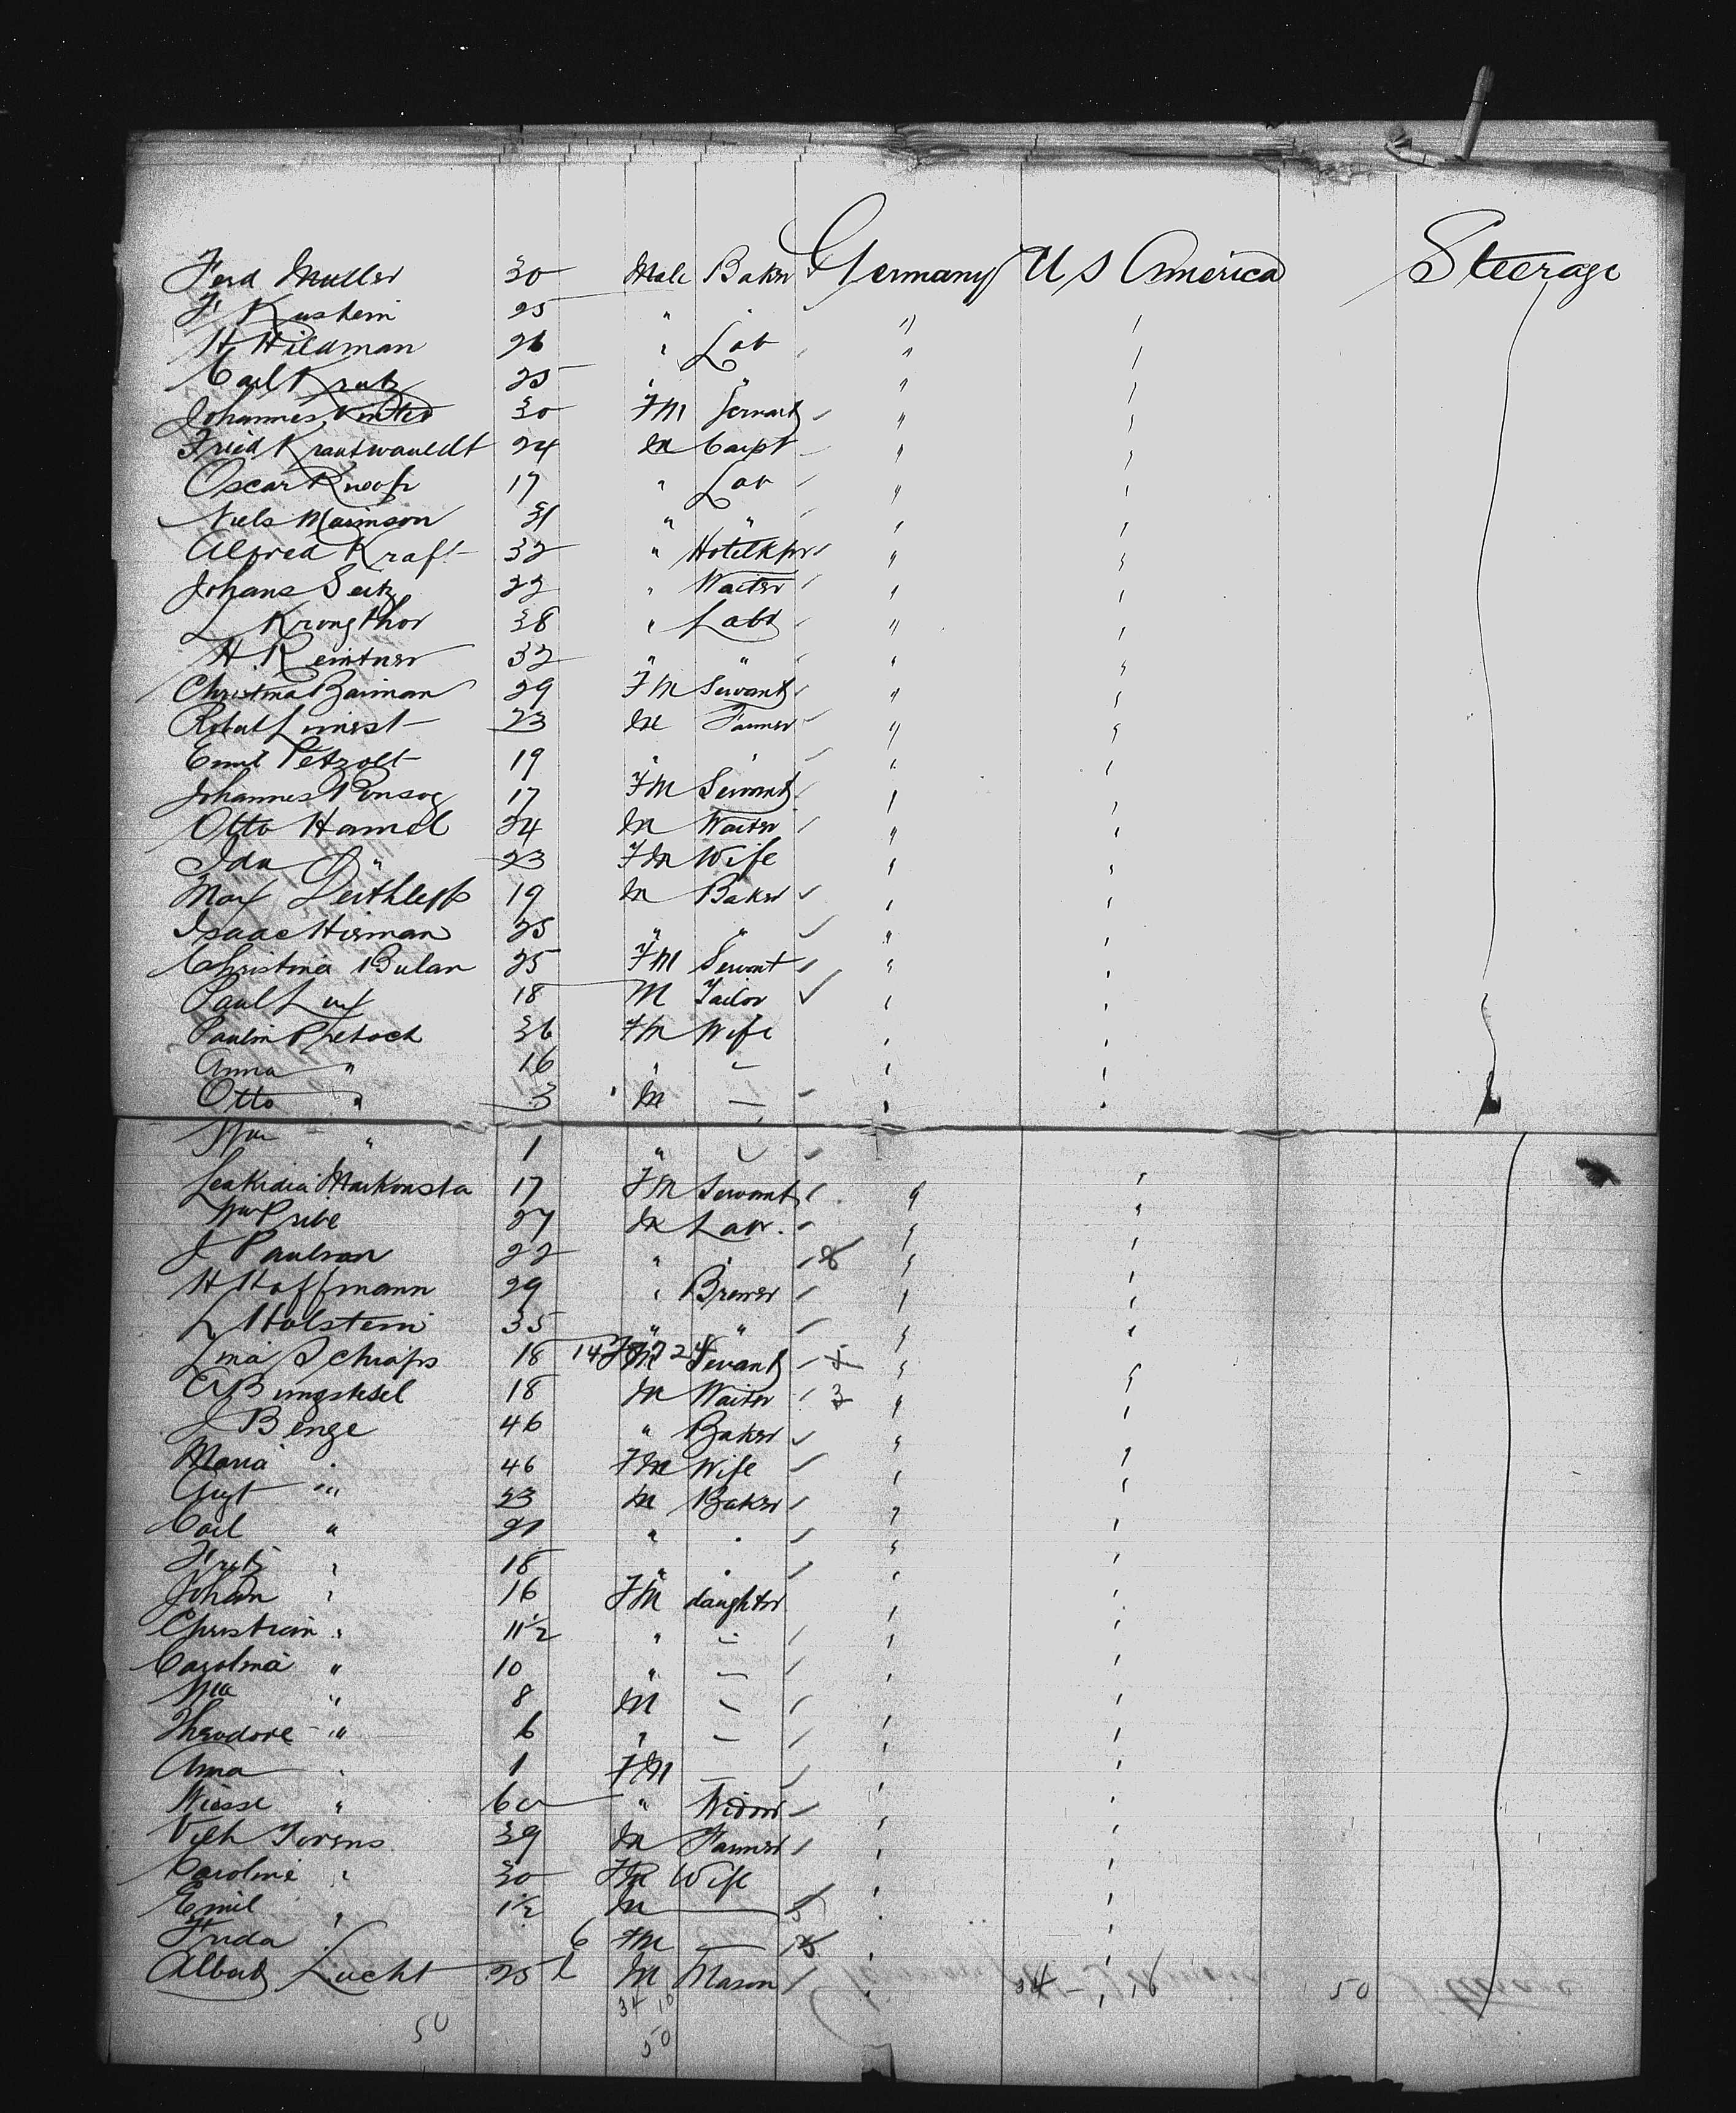 Ferd Muller 30 Male Baker Germany US America Steerage
F Kushein 25 " "
H Hildman 26 " Lab " "
Carl Kratz 25 " " " "
Johannes 30 FM Servant " "
Fried Krautwauldt 24 M Carpt " "
Oscar Knoop 17 " Lab " "
Niels Marinson 31 " " " "
Alfred Kraft 32 " Hotelkpr " "
Johans Seitz 22 " Waiter " "
L Krongthor 38 " Labr " "
H. Reintner 32 " " " "
Christina Bariman 29 FM Servant " "
Robert 23 M Farmer " "
Emil Petzolt 19 " " " "
Johannes 17 FM Servant " "
Otto Hamel 24 M Waiter " "
Ida " 23 FM Wife " "
Max Deithleff 19 M Baker " "
Isaac Hirman 25 " " " "
Christina Bulan 25 FM Servant " "
Paul Lux 18 M Tailor " "
Paulin 36 FM Wife " "
Anna " 16 " — " "
Otto " 3 M — " "
Wm " 1 " —
Leakidia Markonsta 17 FM Servant " "
Wm Pribe 27 M Labr. " "
J Paulson 22 " " " "
H Hoffmann 29 " Brewer " "
L Holstein 35 " " " "
Lina Schraps 18 FM Servant " "
18 M Waiter " "
J Benge 46 " Baker " "
Maria " 46 FM Wife " "
Augt " 23 M Baker " "
Carl " 21 " " " "
Fritz " 18 " " " "
Johan " 16 FM daughter " "
Christian " 11½ " — " "
Carolina " 10 " — " "
Wm " 8 M — " "
Theodore " 6 " — " "
Anna " 1 FM — " "
Wiesse " 60 " Widow " "
Vilh Torens 39 M Farmer " "
Caroline " 30 FM Wife " "
Emil " 1½ M — " "
Frida " 6 FM — " "
Albert Lucht 25 M Mason " 34 - 16 50
50 34 16
50